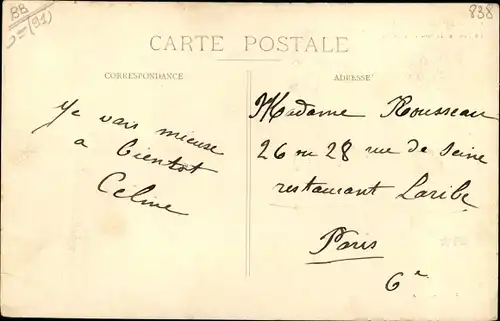 BB
(91)
838
CARTE POSTALE
CORRESPONDANCE
ADRESSE
Je vais mieuse
a bientot
Céline
Madame Rousseau
26 ou 28 rue de Seine
restaurant Laribe
Paris
6e